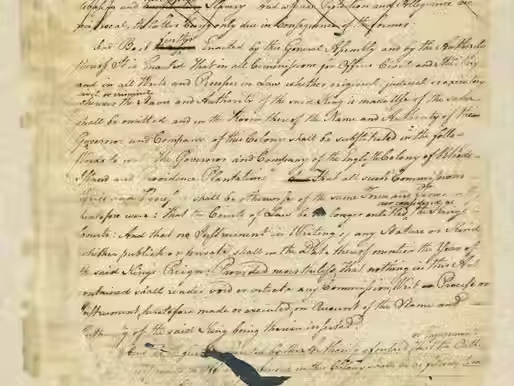 Slavery And whereas Protection and Allegiance are
reciprocal, the latter being only due in Consequence of the former:
And Be it further Enacted by the General Assembly and by the Authority
thereof It is Enacted that in all Commissions for Offices Civil and Military
and in all Writs and Processes in Law whether original, judicial or executory
civil or criminal
wherein the Name and Authority of the said King is made Use of the same
shall be omitted and in the Room thereof the Name and Authority of the
Governor and Company of this Colony shall be substituted in the follo-
Words to wit The Governor and Company of the English Colony of Rhode-
Island and Providence Plantations That all such Commissions
Writs and Process shall be otherwise of the same Form and Tenure
heretofore were: that the Courts of Law be no longer entitled the King's
no longer
Courts: And that no Instrument in Writing of any Nature or Kind
whether publick or private shall in the Date thereof mention the Year of
the said King's Reign: Provided nevertheless that nothing in this Act
contained shall render void or vitiate any Commission Writ Process or
Instrument heretofore made or executed, on Account of the Name and
Authority of the said King being therein inserted
by the Authority aforesaid that the